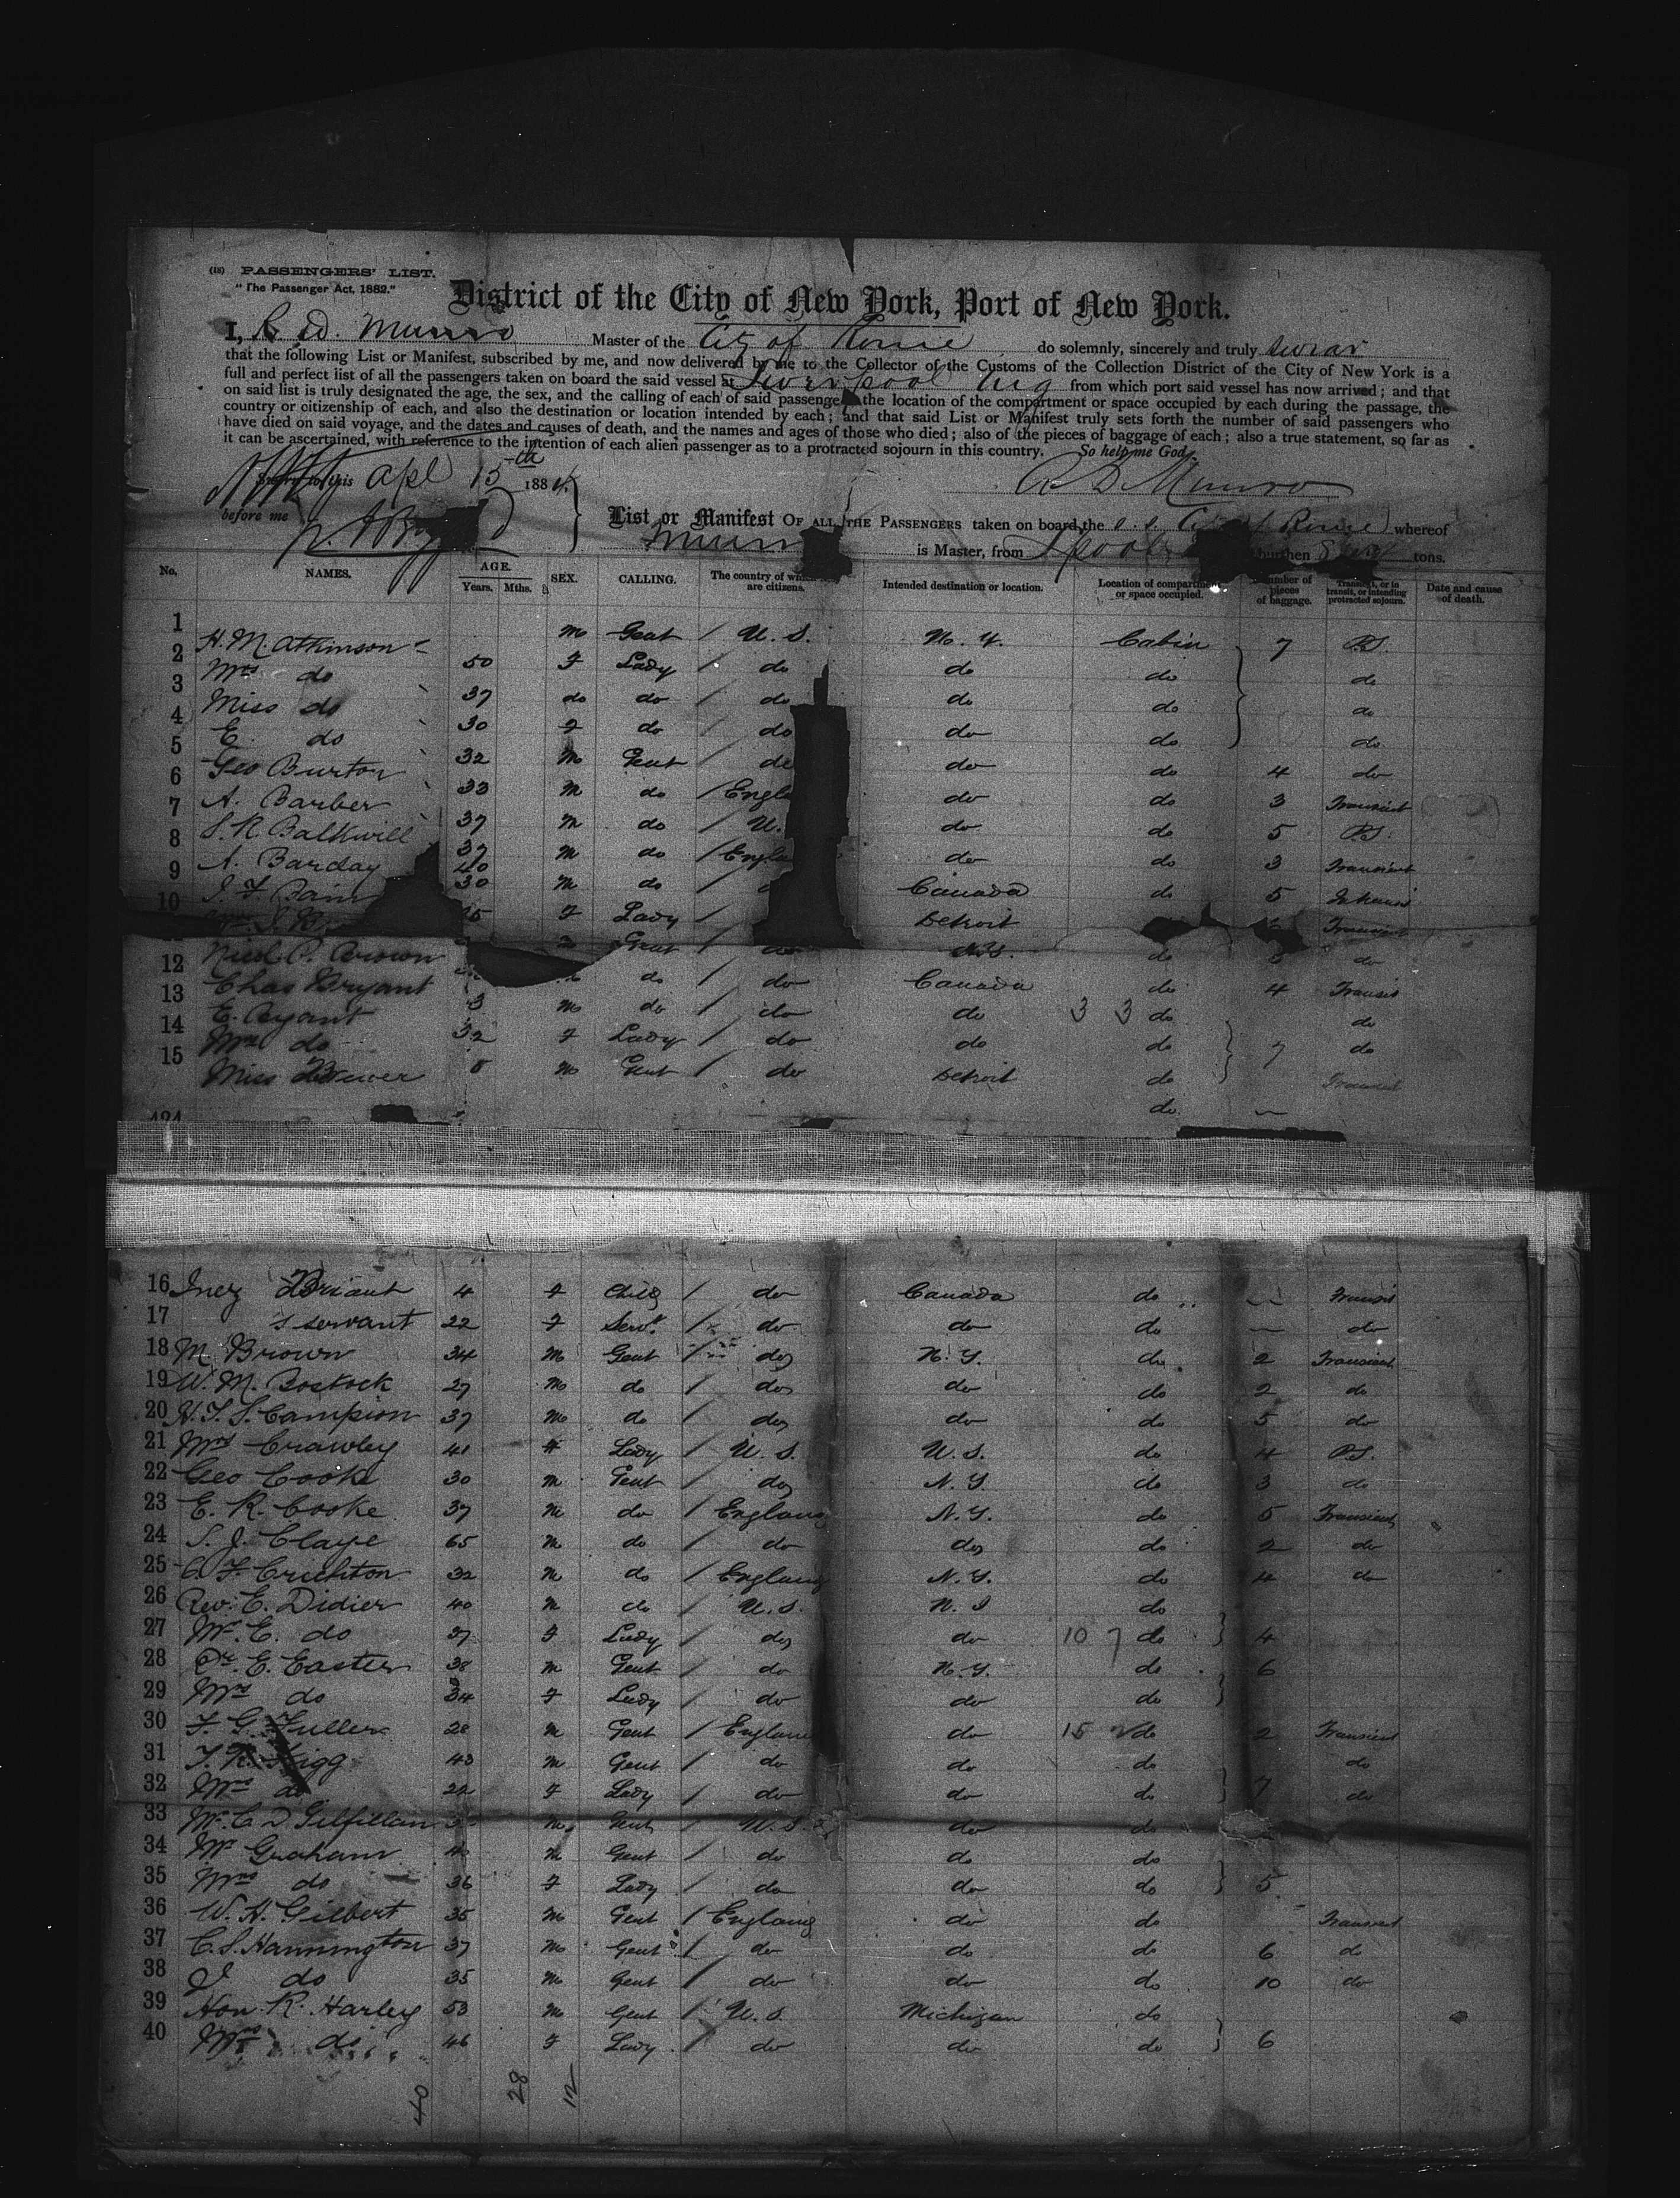 (18) PASSENGERS' LIST.
"The Passenger Act, 1882."
District of the City of New York, Port of New York.
I, R. D. Munro Master of the City of Rome do solemnly, sincerely and truly swear
that the following List or Manifest, subscribed by me, and now delivered by me to the Collector of the Customs of the Collection District of the City of New York is a
full and perfect list of all the passengers taken on board the said vessel at Liverpool from which port said vessel has now arrived; and that
on said list is truly designated the age, the sex, and the calling of each of said passengers the location of the compartment or space occupied by each during the passage, the
country or citizenship of each, and also the destination or location intended by each; and that said List or Manifest truly sets forth the number of said passengers who
have died on said voyage, and the dates and causes of death, and the names and ages of those who died; also of the pieces of baggage of each; also a true statement, so far as
it can be ascertained, with reference to the intention of each alien passenger as to a protracted sojourn in this country. So help me God.
this Apl 15th 1884
R D Munro
before me
List or Manifest OF ALL THE PASSENGERS taken on board the s.s. City of Rome whereof
Munro is Master, from Lpool burthen tons.
No. NAMES. AGE. Years. Mths. SEX. CALLING. The country of which are citizens. Intended destination or location. Location of compartment or space occupied. Number of pieces of baggage. Transient, or in transit, or intending protracted sojourn. Date and cause of death.
1 H. M. Atkinson M Gent / U. S. N. Y. Cabin 7 P.S.
2 Mrs do 50 F Lady / do do do do
3 Miss do 37 do do / do do do do
4 E. do 30 F do / do do do do
5 Geo Burton 32 M Gent / do do do 4 do
6 A. Barber 33 M do / Engla do do 3 Transient
7 S. R. Balkwill 37 M do / U. do do 5 P.S.
8 A. Barclay 37 40 M do / Engla do do 3 Transient
9 J. F. Bain 30 M do / Canada do 5 Intransit
10 F Lady / Detroit Transient
Nicol P. Brown Gent / do N.Y. do do
12 Chas Bryant do / do Canada do 4 Transit
13 E. Bryant 3 M do / do do 3 3 do do
14 Mrs do 32 F Lady / do do do 7 do
15 Miss Brewer 8 M Gent / do Detroit do Transient
do
16 Inez Briant 4 F Child / do Canada do Transit
17 s servant 22 F Servt. / do do do do
18 M. Brown 34 M Gent / do N. Y. do 2 Transient
19 W. M. Bostock 27 M do / do do do 2 do
20 H. T. S. Campion 37 M do / do do do 5 do
21 Mrs Crawley 41 F Lady / U. S. U. S. do 4 P.S.
22 Geo Cooke 30 M Gent / do N. Y. do 3 do
23 E. R. Cooke 37 M do / England N. Y. do 5 Transient
24 S. J. Claye 65 M do / do do do 2 do
25 C. F. Crichton 32 M do / England N. Y. do 4 do
26 Rev. E. Didier 40 M do / U. S. N. Y do
27 Mrs. E. do 37 F Lady / do do 10 7 do 4
28 Dr. E. Easter 38 M Gent / do N. Y. do 6
29 Mrs do 34 F Lady / do do do
30 F. G. Fuller 28 M Gent / England do 15 2 do 2 Transient
31 T. R. Figg 43 M Gent / do do do do
32 Mrs do 22 F Lady / do do do 7 do
33 Mr. C. D. Gilfillan M Gent U. S. do do
34 Mr Graham M Gent / do do do
35 Mrs do 36 F Lady / do do do 5
36 W. H. Gilbert 35 M Gent / England do do Transient
37 C. S. Hannington 37 M Gent / do do do 6 do
38 J do 35 M Gent / do do do 10 do
39 Hon. R. Harley 53 M Gent / U. S. Michigan do
40 Mrs do 46 F Lady / do do do 6
40 28 12